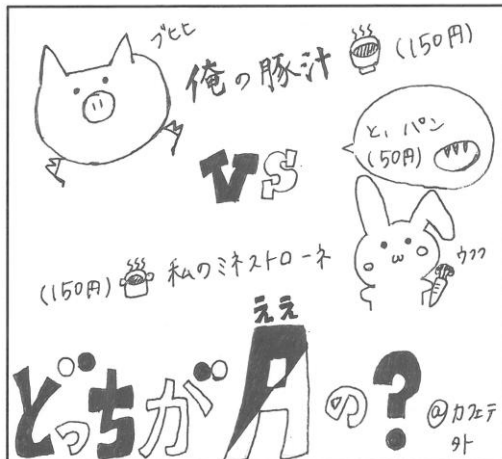 ブヒヒ
俺の豚汁 (150円)
と、パン
(50円)
VS
(150円) 私のミネストローネ
ウフフ
ええ
どっちが月の?
@カフェテ
外